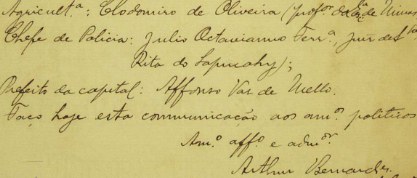 Agricultª: Clodomiro de Oliveira (profor da Eª de Minas
Chefe de Policia: Julio Octaviano Ferrª, juiz de Stª
Rita do Sapucahy);
Prefeito da capital: Affonso Vaz de Mello.
Faço hoje esta communicação aos amos politicos
Amo affo e admor
Arthur Bernardes